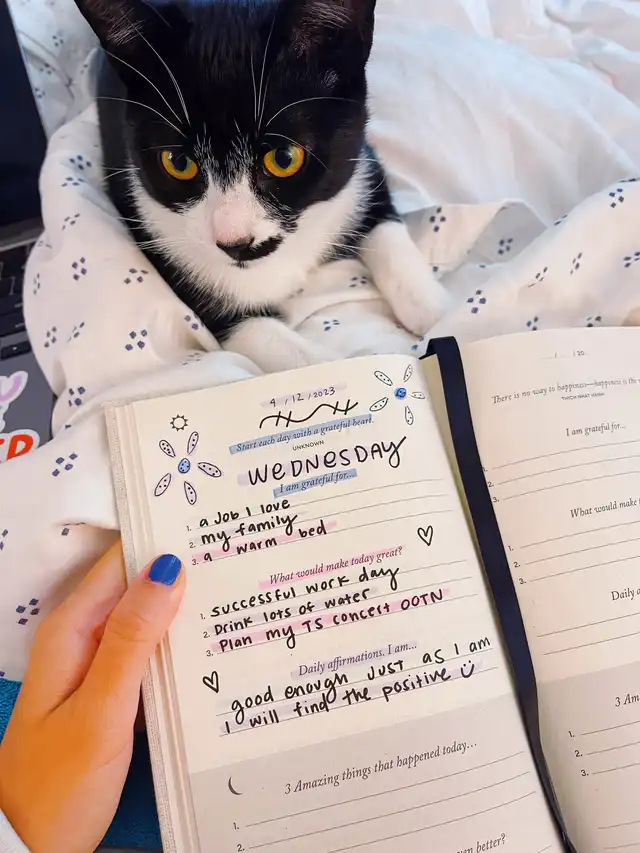 4 / 12 / 2023
Start each day with a grateful heart.
UNKNOWN
WEDNESDAY
I am grateful for...
1. a job I love
2. my family
3. a warm bed
What would make today great?
1. successful work day
2. Drink lots of water
3. Plan my TS concert OOTN
Daily affirmations. I am...
good enough just as I am
I will find the positive
3 Amazing things that happened today...
1.
2.
better?
/ / 20
There is no way to happiness—happiness is the
THICH NHAT HANH
I am grateful for...
1.
2.
3.
What would make
1.
2.
3.
Daily a
3 Am
1.
2.
3.